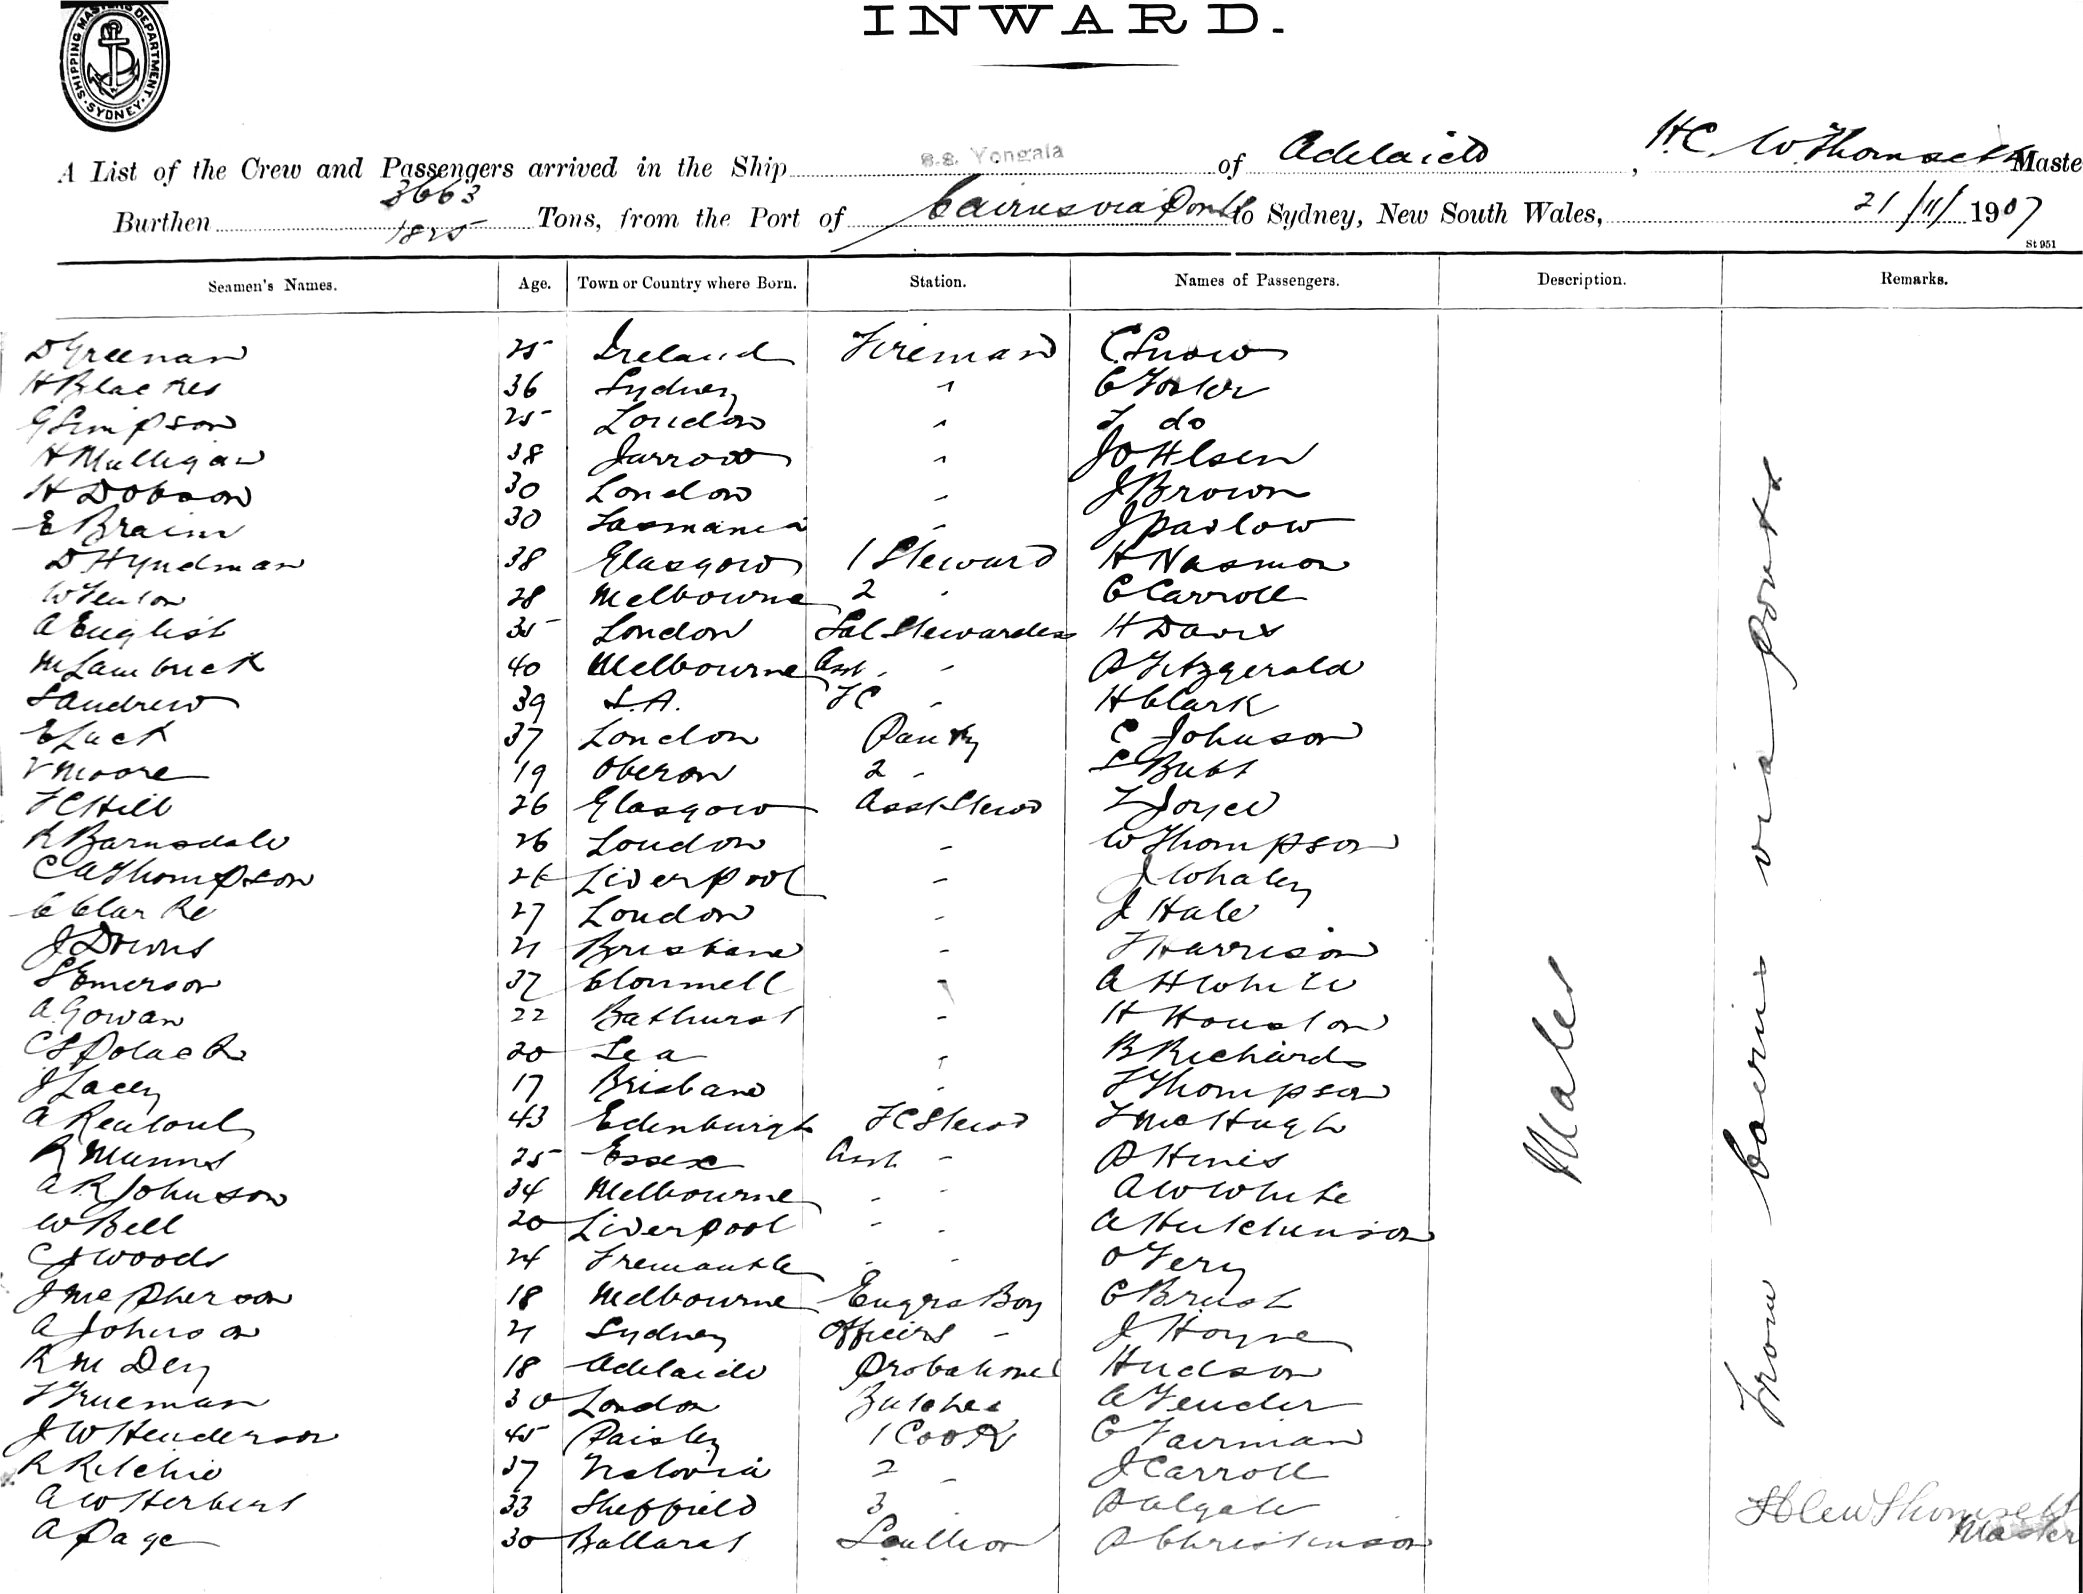 SHIPPING MASTERS DEPARTMENT SYDNEY
INWARD.
A List of the Crew and Passengers arrived in the Ship s.s. Yongala of Adelaide, H.C. W. Thomsett Maste
Burthen 3663 1825 Tons, from the Port of Cairns via Ports to Sydney, New South Wales, 21/11/1907
St 951
Seamen's Names. Age. Town or Country where Born. Station. Names of Passengers. Description. Remarks.
D Greenan 25 Ireland Fireman C. Snow
H Blackes 36 Sydney " C Foster
G Simpson 25 London " F do
H Mulligan 38 Jarrow " J Ohlsen
H Dobson 30 London " J Brown
E Braim 30 Tasmania " J Paslow
D Hyndman 38 Glasgow 1 Steward H Nasmon
W Fenton 28 Melbourne 2 " C Carroll
A English 35 London Sal Stewardess H Davis
M Lambrick 40 Melbourne Asst " " D Fitzgerald
S Andrew 39 S.A. FC " H Clark
E Luck 37 London Pantry C Johnson
V Moore 19 Oberon 2 " S Bubt
F C Hill 26 Glasgow Asst Stewd T Joyce
R Barnsdale 26 London " W Thompson
C A Thompson 26 Liverpool " J Whaley
C Clarke 27 London " J Hale
J Downs 21 Brisbane " F Harrison
S Emerson 37 Clonmell " A H White
A. Gowan 22 Bathurst " H Houston
C S Polack 20 Sea " B Richards
J Lacey 17 Brisbane " F Thompson
A Rentoul 43 Edinburgh FC Stewd F McHugh
R Munns 25 Essex Asst " D Hines
A R Johnson 34 Melbourne " " A W White
W Bell 20 Liverpool " " A Hutchinson
C J Woods 24 Fremantle " " O Fery
J McPherson 18 Melbourne Engrs Boy C Brush
A Johnson 21 Sydney Officers " J Hoyne
R M Dey 18 Adelaide Probationer Hudson
F Trueman 30 London Butcher A Fender
J W Henderson 45 Paisley 1 Cook C Fairman
R Ritchie 37 Victoria 2 " J Carroll
A W Herbert 33 Sheffield 3 " D Algate
A Page 30 Ballarat Scullion D Christinson
Males
From Cairns via Ports
H C W Thomsett
Master